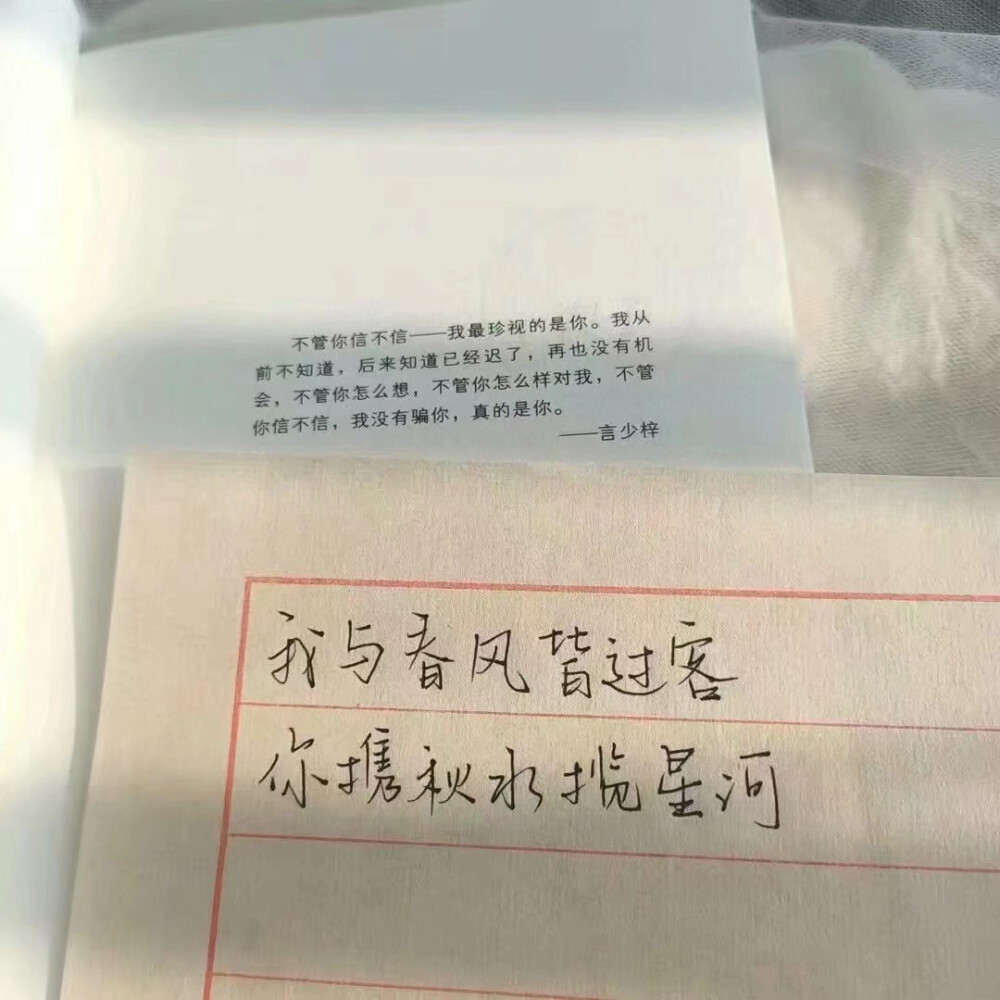 不管你信不信——我最珍视的是你。我从
前不知道，后来知道已经迟了，再也没有机
会，不管你怎么想，不管你怎么样对我，不管
你信不信，我没有骗你，真的是你。
——言少梓
我与春风皆过客
你携秋水揽星河